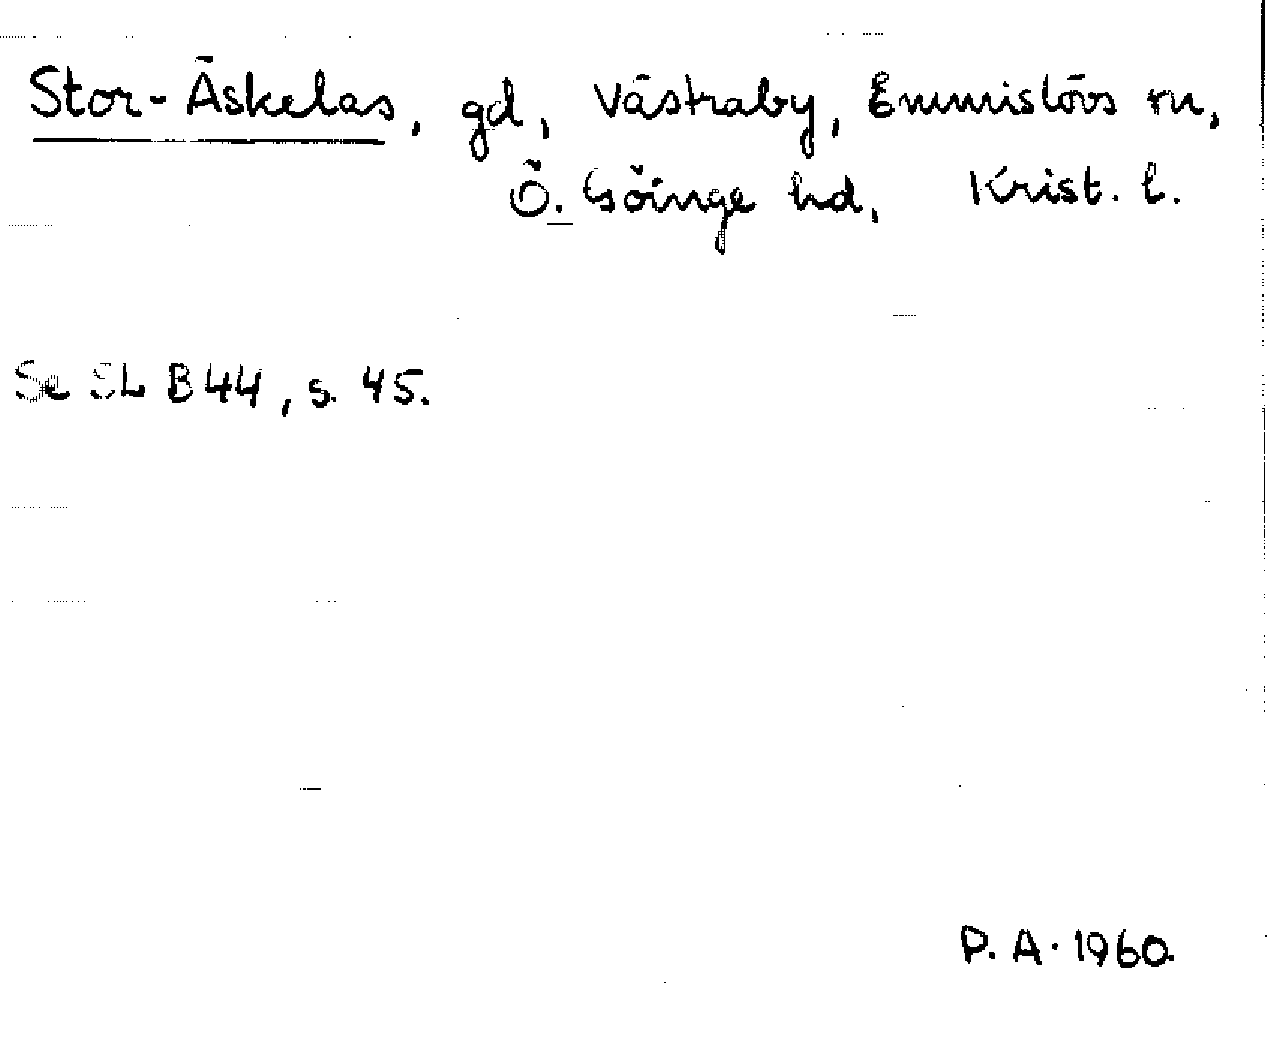 Stor-Äskelas, gd, Västraby, Emmislövs sn,
Ö. Göinge hd, Krist. l.
Se SL B44, s. 45.
P. A. 1960.